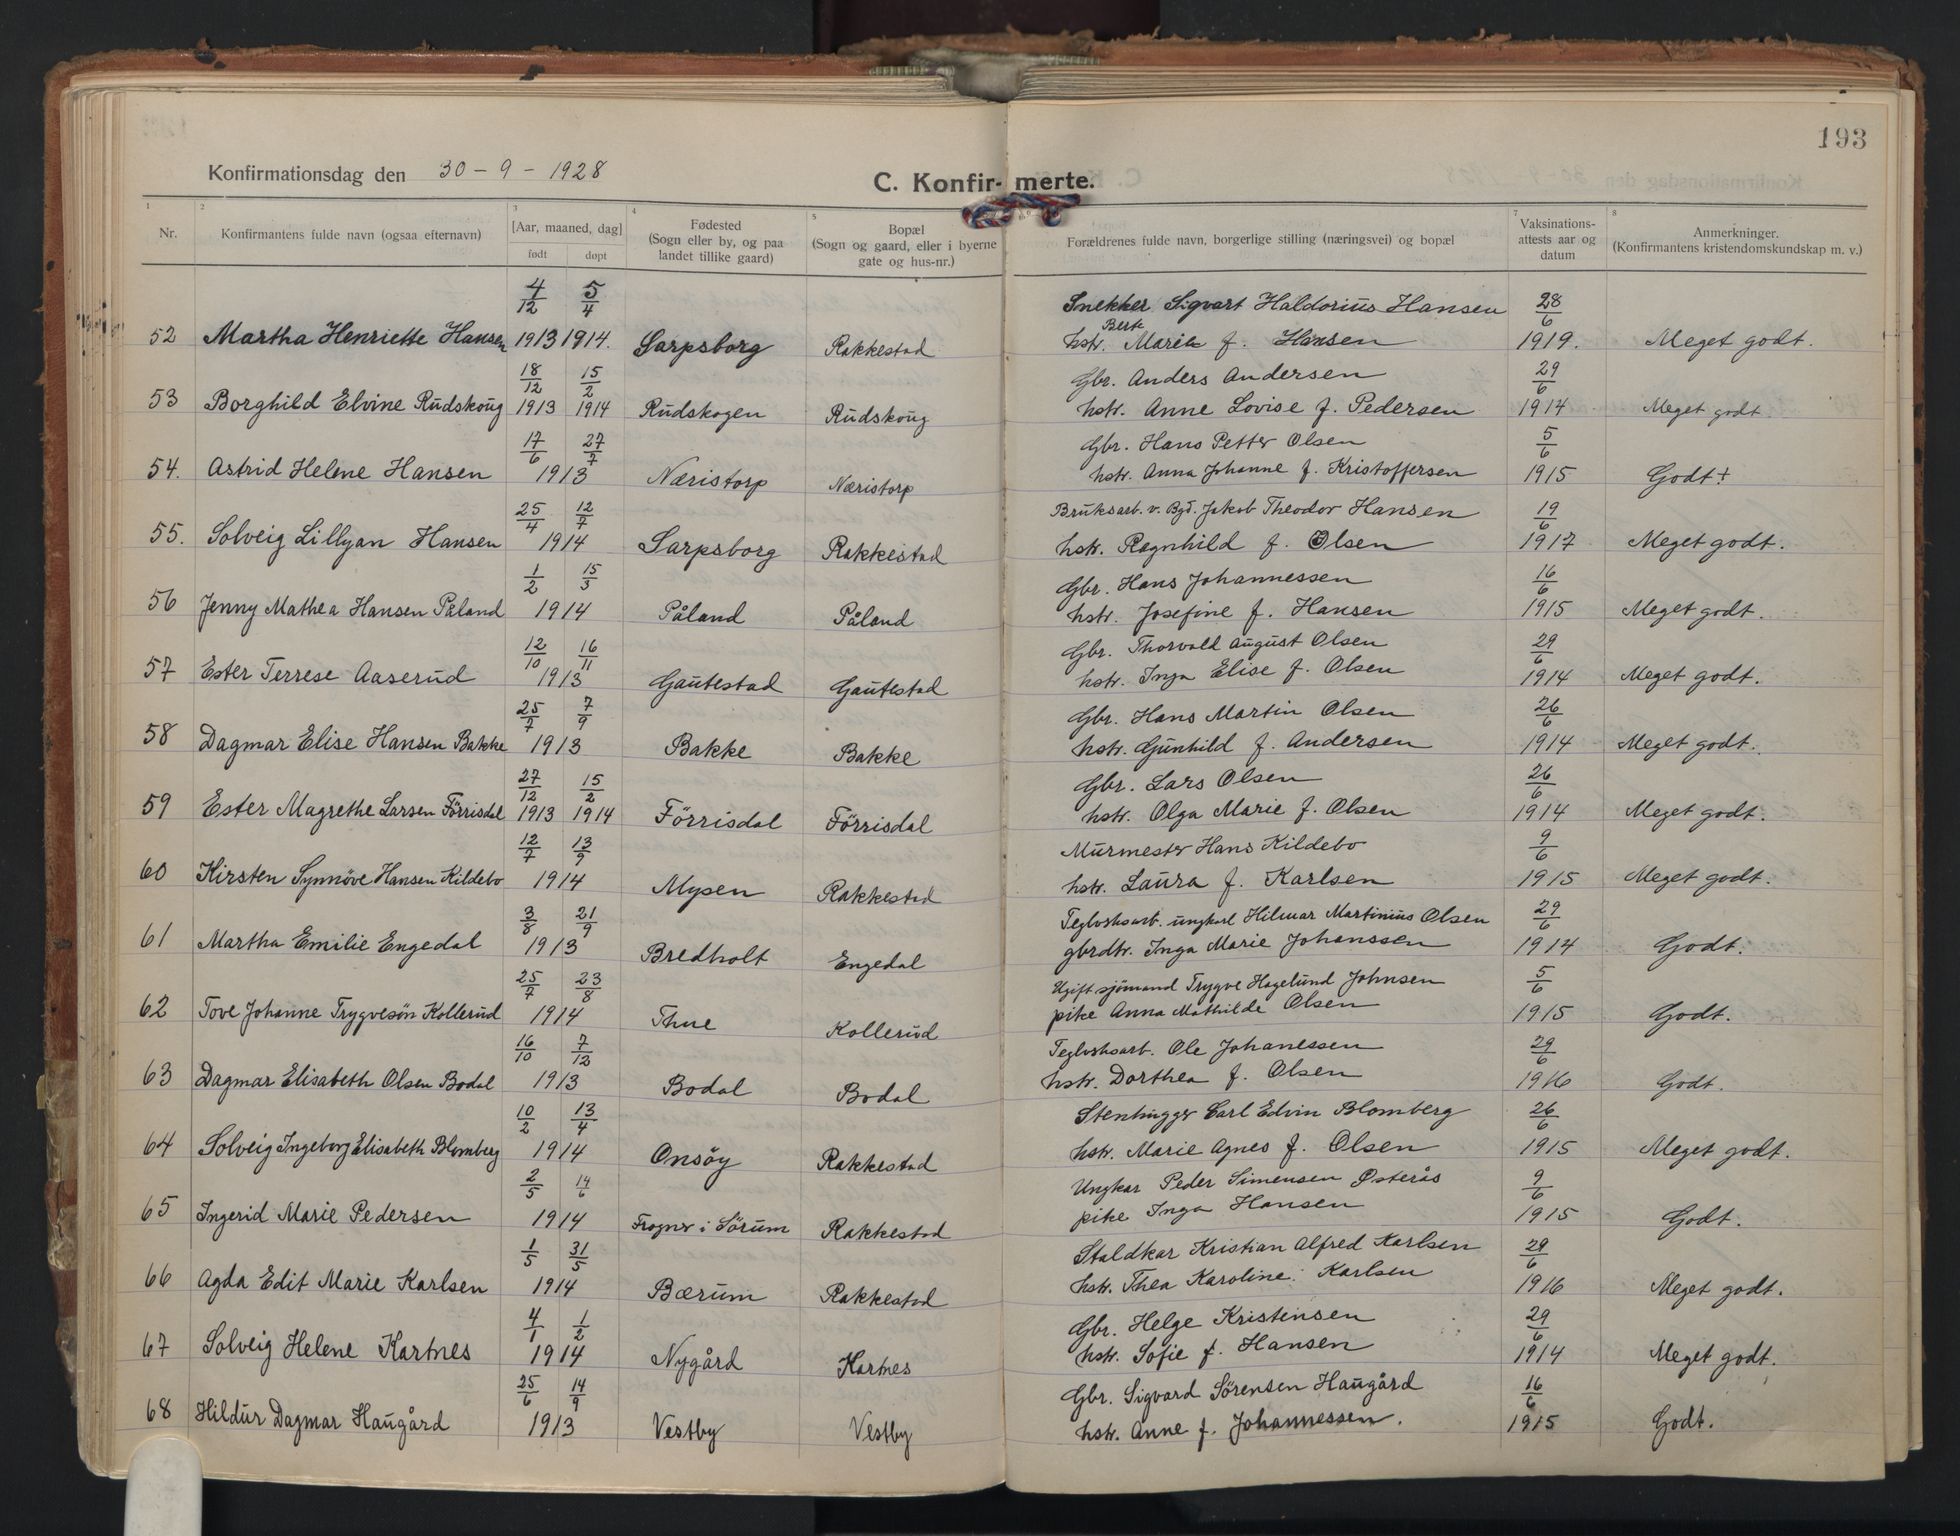 193
Konfirmationsdag den 30 - 9 - 1928
C. Konfir- merte.
1 2 3 4 5 7 8
Nr.
Konfirmantens fulde navn (ogsaa efternavn)
[Aar, maaned, dag]
født døpt
Fødested
(Sogn eller by, og paa
landet tillike gaard)
Bopæl
(Sogn og gaard, eller i byerne
gate og hus-nr.)
Forældrenes fulde navn, borgerlige stilling (næringsvei) og bopæl
Vaksinations-
attests aar og
datum
Anmerkninger.
(Konfirmantens kristendomskundskap m. v.)
4/12 5/4 Snekker Sigvart Haldorius Hansen 28/6
52 Martha Henriette Hansen 1913 1914. Sarpsborg Rakkestad hstr. Berte Marie f. Hansen 1919. Meget godt.
18/12 15/2 Gbr. Anders Andersen 29/6
53 Borghild Elvine Rudskoug 1913 1914 Rudskogen Rudskoug hstr. Anne Lovise f. Pedersen 1914 Meget godt.
17/6 27/7 Gbr. Hans Petter Olsen 5/6
54. Astrid Helene Hansen 1913 Næristorp Næristorp hstr. Anna Johanne f. Kristoffersen 1915 Godt+
25/4 12/7 Bruksarb. v. Bgd. Jakob Theodor Hansen 19/6
55. Solveig Lillyan Hansen 1914 Sarpsborg Rakkestad hstr. Ragnhild f. Olsen 1917 Meget godt.
1/2 15/3 Gbr. Hans Johannessen 16/6
56 Jenny Mathea Hansen Påland 1914 Påland Påland hstr. Josefine f. Hansen 1915 Meget godt.
12/10 16/11 Gbr. Thorvald August Olsen 29/6
57 Ester Terrese Aaserud 1913 Gautestad Gautestad hstr. Inga Elise f. Olsen 1914 Meget godt.
25/7 7/9 Gbr. Hans Martin Olsen 26/6
58 Dagmar Elise Hansen Bakke 1913 Bakke Bakke hstr. Gunhild f. Andersen 1914 Meget godt.
27/12 15/2 Gbr. Lars Olsen 26/6
59 Ester Magrethe Larsen Förrisdal 1913 1914 Förrisdal Förrisdal hstr. Olga Marie f. Olsen 1914 Meget godt.
12/7 13/9 Murmester Hans Kildebo 9/6
60 Kirsten Synnöve Hansen Kildebo 1914 Mysen Rakkestad hstr. Laura f. Karlsen 1915 Meget godt.
3/8 21/9 Teglvrksarb. ungkarl Hilmar Martinius Olsen 29/6
61 Martha Emilie Engedal 1913 Bredholt Engedal gbrdtr. Inga Marie Johanssen 1914 Godt.
25/7 23/8 Ugift sjömand Trygve Hagelund Johnsen 5/6
62 Tove Johanne Trygvesön Kollerud 1914 Thue Kollerud pike Anna Mathilde Olsen 1915 Godt.
16/10 7/12 Teglvrksarb. Ole Johanessen 29/6
63 Dagmar Elisabeth Olsen Bodal 1913 Bodal Bodal hstr. Dorthea f. Olsen 1916 Godt.
10/2 13/4 Stenhugger Carl Edvin Blomberg 26/6
64 Solveig Ingeborg Elisabeth Blomberg 1914 Onsöy Rakkestad hstr. Marie Agnes f. Olsen 1915 Meget godt.
2/5 14/6 Ungkar Peder Simensen Østerås 9/6
65 Ingerid Marie Pedersen 1914 Frogner i Sörum Rakkestad pike Inga Hansen 1915 Godt.
1/5 31/5 Staldkar Kristian Alfred Karlsen 29/6
66 Agda Edit Marie Karlsen 1914 Bærum Rakkestad hstr. Thea Karoline Karlsen 1916 Meget godt.
4/1 1/2 Gbr. Helge Kristensen 29/6
67 Solveig Helene Kartnes 1914 Nygård Kartnes hstr. Sofie f. Hansen 1914 Meget godt.
25/6 14/9 Gbr. Sigvard Sörensen Haugård 16/6
68 Hildur Dagmar Haugård 1913 Vestby Vestby hstr. Anne f. Johannessen. 1915 Godt.